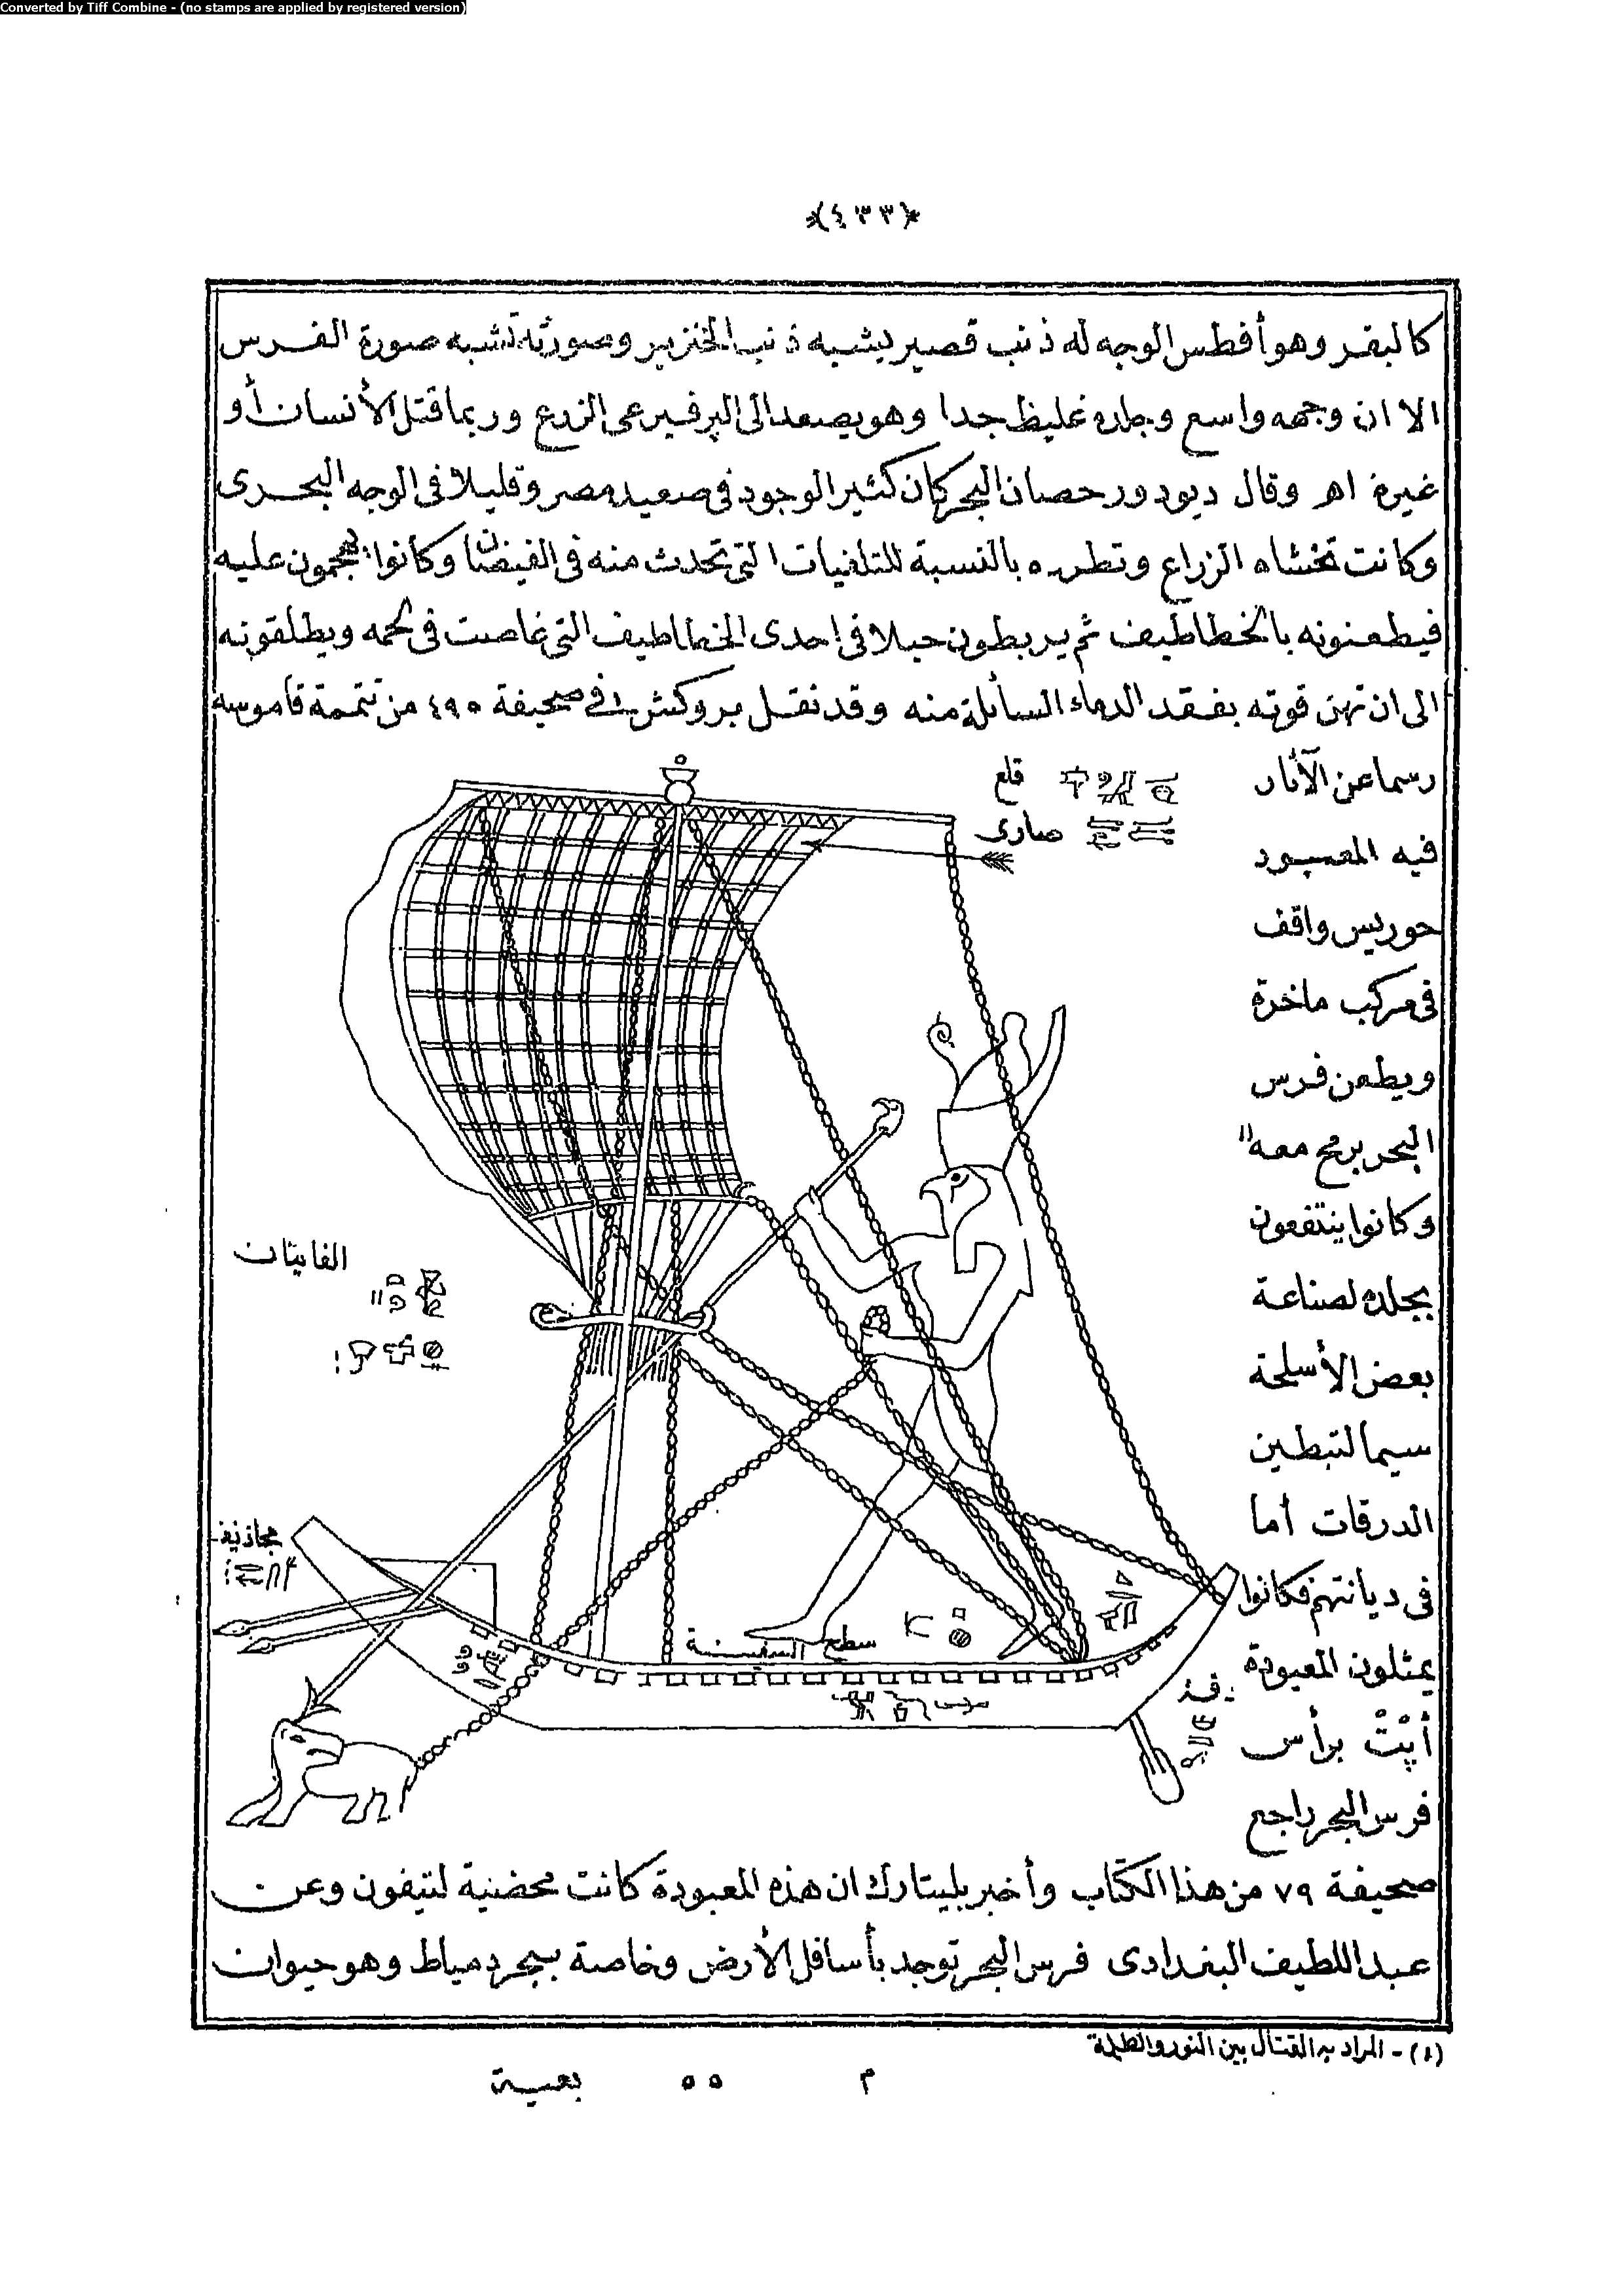 Converted by Tiff Combine - (no stamps are applied by registered version)
﴿٤٣٣﴾
كالبقر وهو أفطس الوجه له ذنب قصير يشبه ذنب الخنزير وصورته تشبه صورة الفرس
الا ان وجهه واسع وجلده غليظ جدا وهو يصعد الى البر فيرعى الزرع وربما قتل الأنسان أو
غيره اهـ وقال ديودور حصان البحر كان كثير الوجود فى صعيد مصر وقليلا فى الوجه البحرى
وكانت تخشاه الزراع وتطرده بالنسبة للتلفيات التى تحدث منه فى الفيضان وكانوا يهجمون عليه
فيطعنونه بالخطاطيف ثم يربطون حبلا فى احدى الخطاطيف التى غاصت فى لحمه ويطلقونه
الى ان تهن قوته بفقد الدماء السائلة منه وقد نقل بروكش فى صحيفة ٤٩٥ من تتمة قاموسه
رسما عن الآثار
فيه المعبود
حوريس واقف
فى مركب ماخرة
ويطعن فرس
البحر برمح معه
وكانوا ينتفعون
بجلده لصناعة
بعض الأسلحة
سيما لتبطين
الدرقات أما
فى ديانتهم فكانوا
يمثلون المعبودة
أپِتْ برأس
فرس البحر راجع
قلع
صارى
مجاذيف
سطح السفينة
صحيفة ٧٩ من هذا الكتاب وأخبر بليتارك ان هذه المعبودة كانت محضية لتيفون وعن
عبد اللطيف البغدادى فرس البحر توجد بأسافل الأرض وخاصة ببحر دمياط وهو حيوان
(١) - المراد به القتال بين النور والظلمة
م ٥٥ بغية